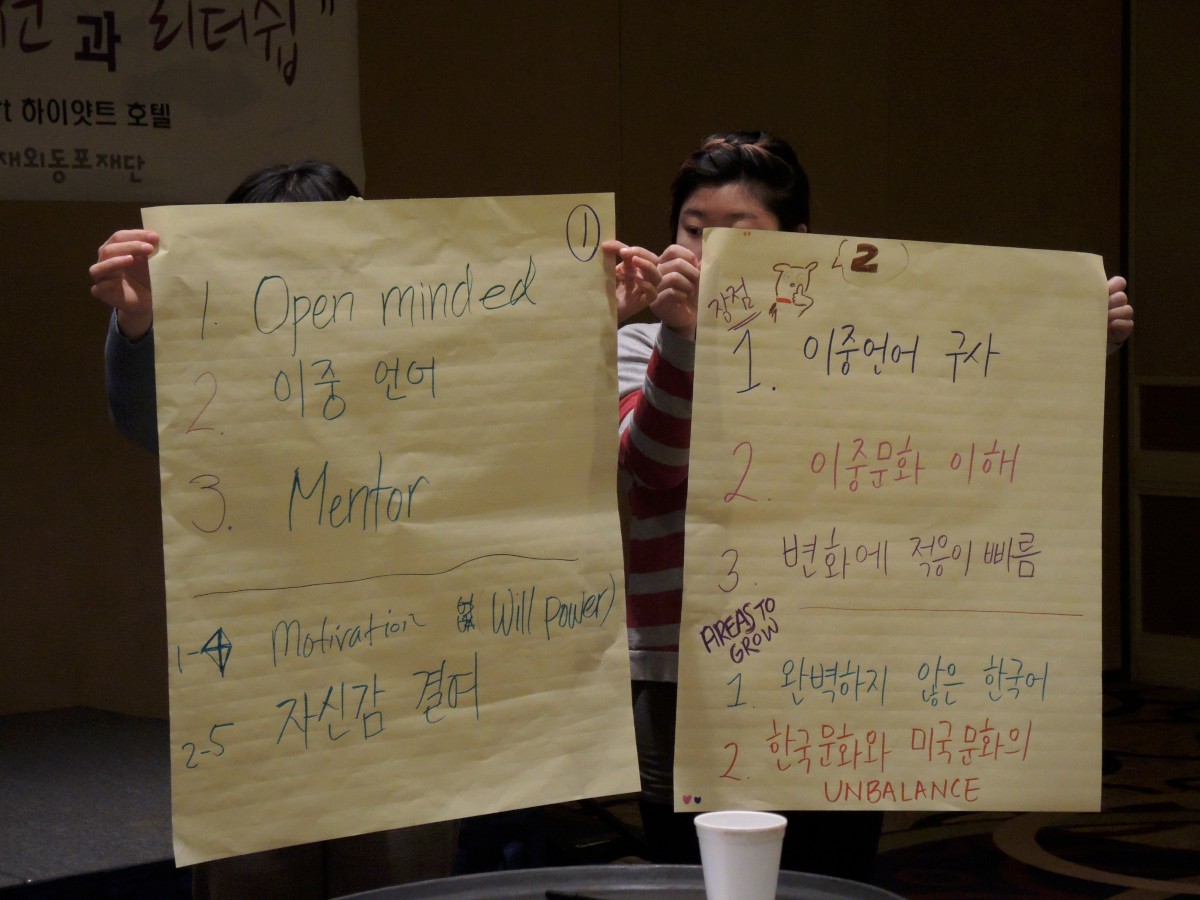 과 리더쉽"
하이얏트 호텔
재외동포재단
①
1. Open minded
2. 이중 언어
3. Mentor
1- Motivation Will power)
2-5 자신감 결여
2
장점
1. 이중언어 구사
2. 이중문화 이해
3. 변화에 적응이 빠름
AREAS TO
GROW
1. 완벽하지 않은 한국어
2. 한국문화와 미국문화의
UNBALANCE